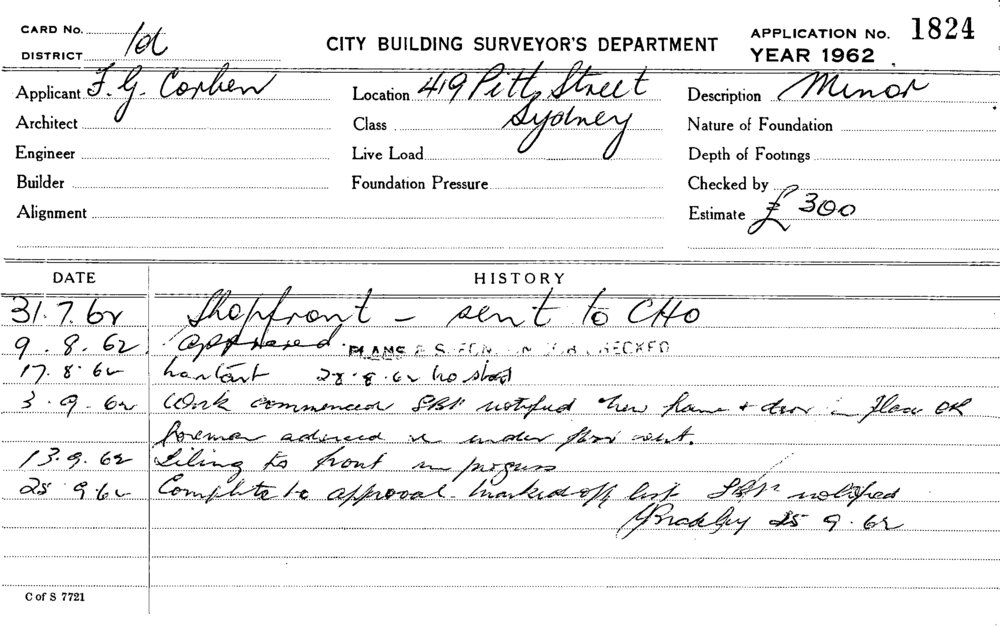 CARD No.
DISTRICT 1d
CITY BUILDING SURVEYOR'S DEPARTMENT
APPLICATION No. 1824
YEAR 1962
Applicant F. G. Corben
Location 419 Pitt Street
Sydney
Description Minor
Architect
Class
Nature of Foundation
Engineer
Live Load
Depth of Footings
Builder
Foundation Pressure
Checked by
Alignment
Estimate £ 300
DATE HISTORY
31.7.62 Shopfront - sent to CHO
9.8.62 approved. PLANS & CHECKED
17.8.62 28.8.62 no start
3.9.62 Work commenced notified new frame & door in place OK
foreman advised re under floor vent.
13.9.62 Tiling to front in progress
25.9.62 Complete to approval - marked off list notified
25.9.62
C of S 7721